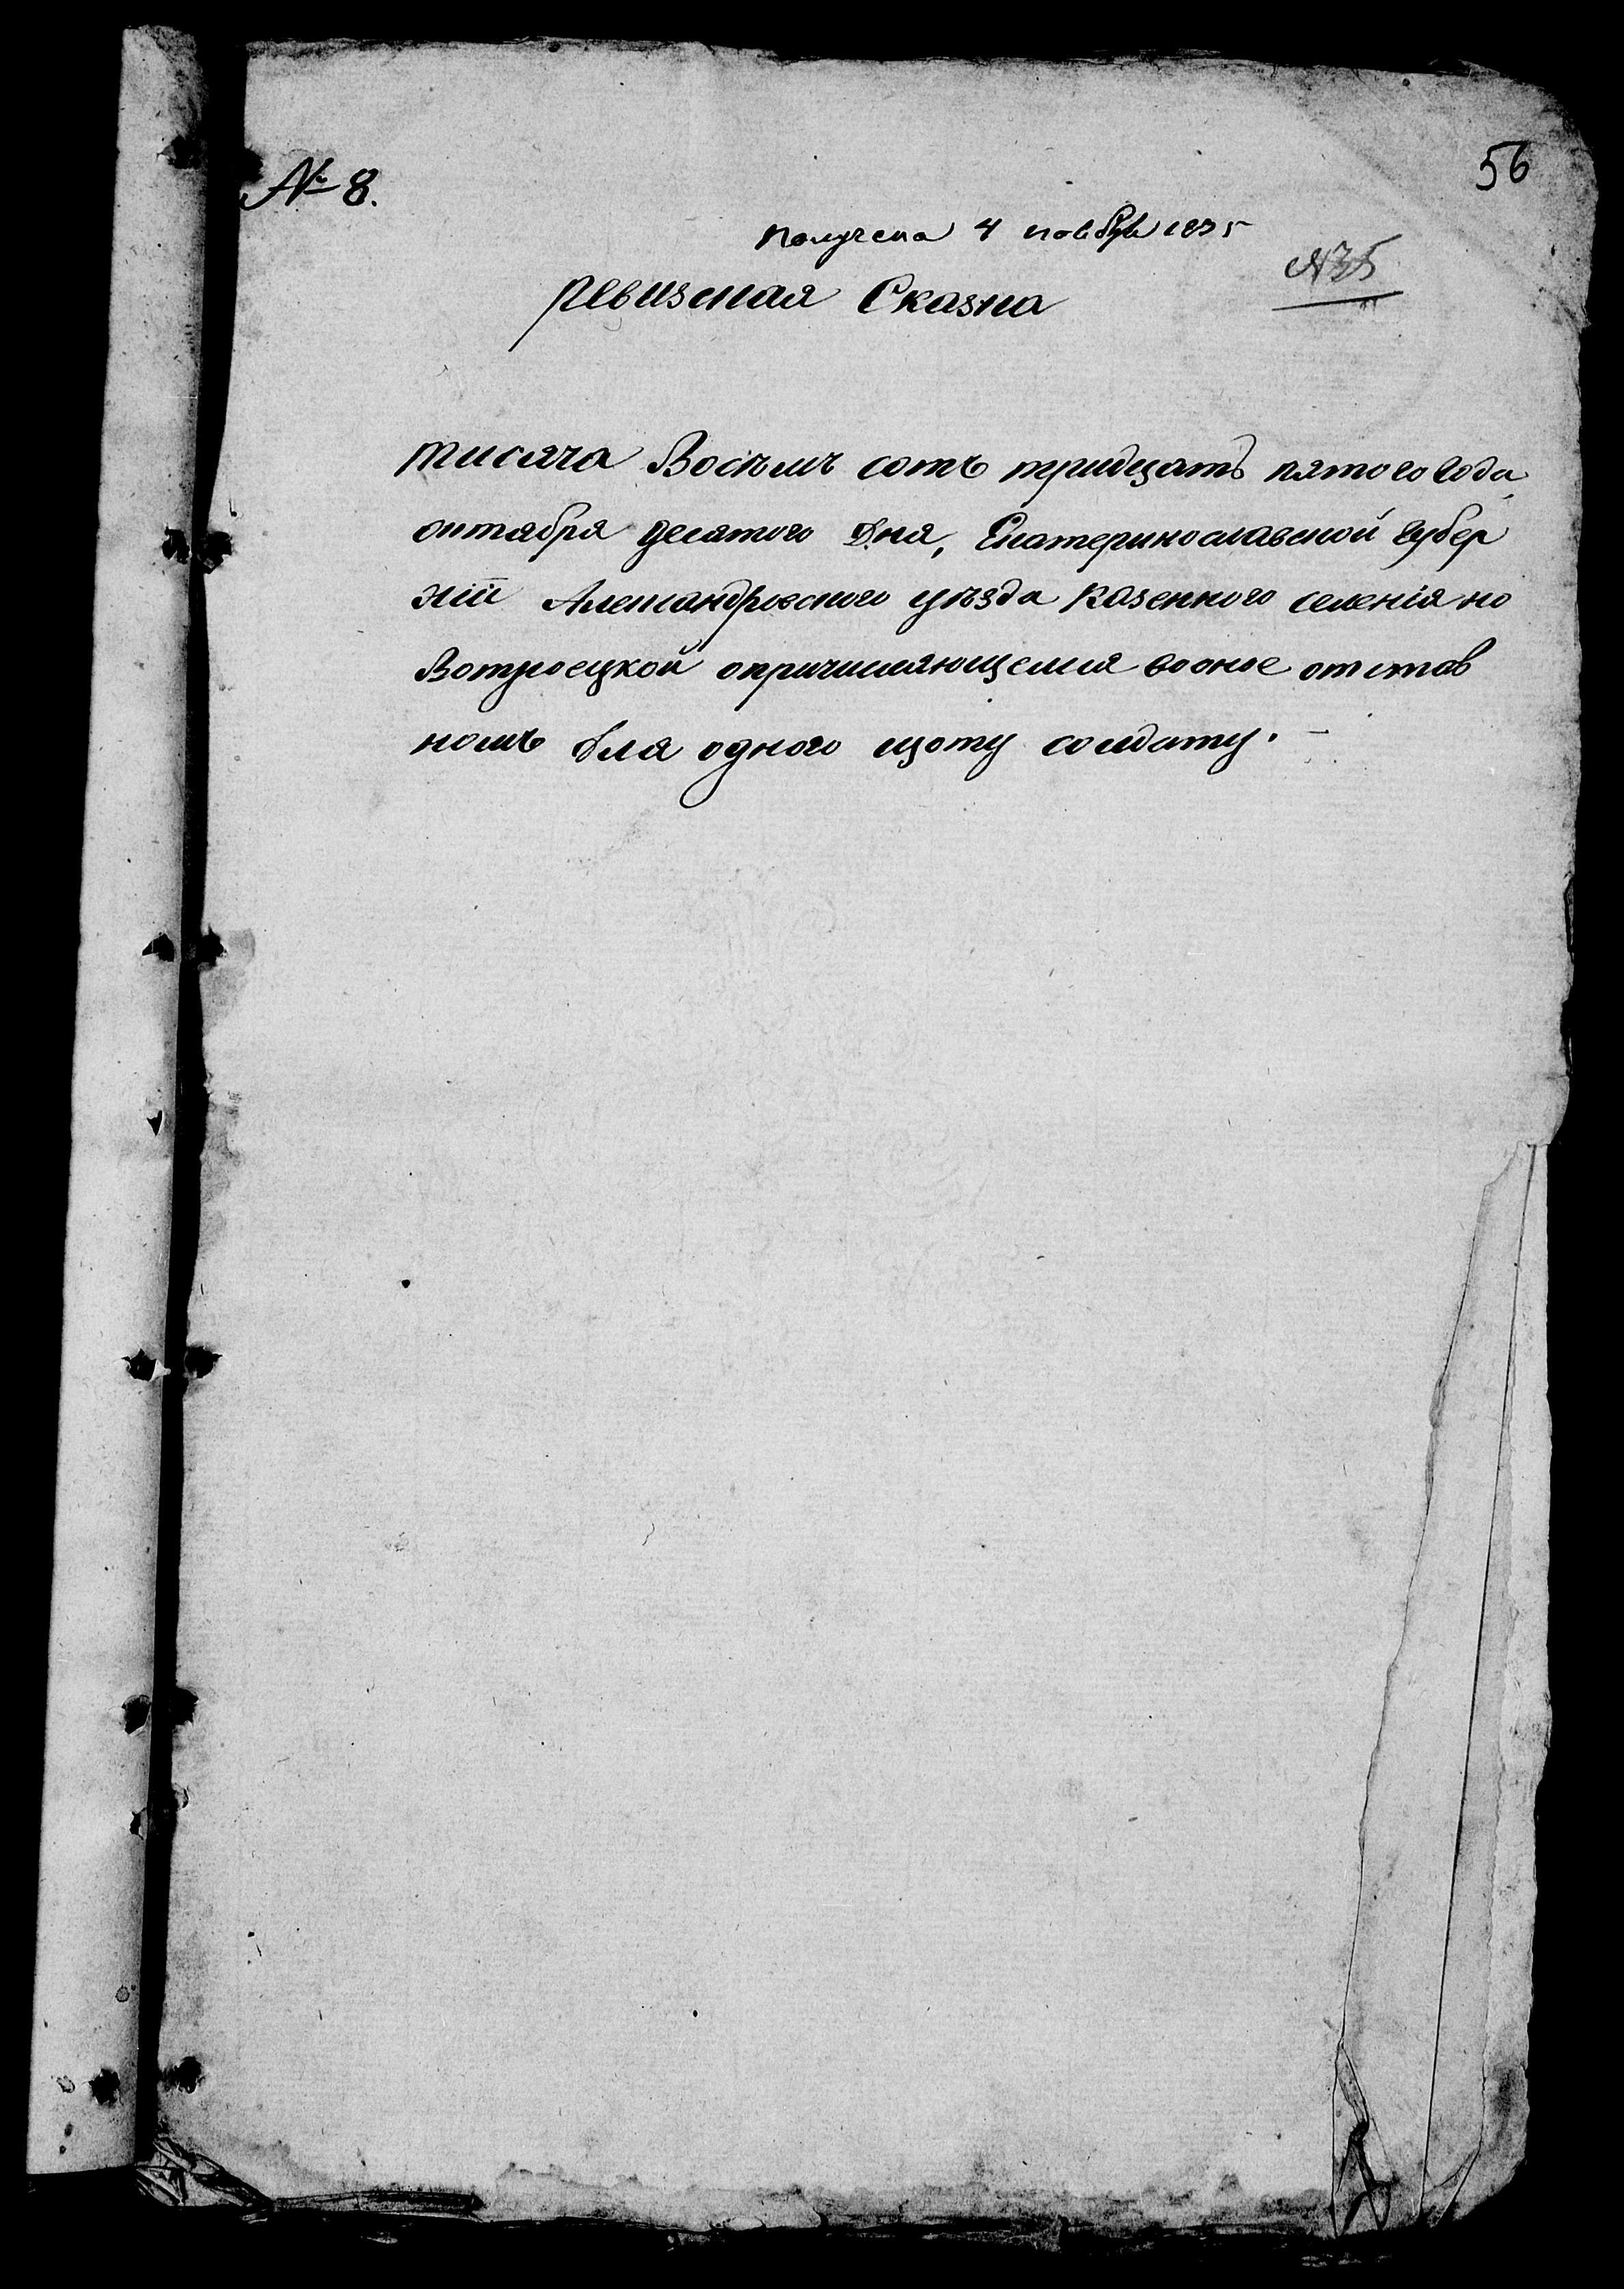 № 8.
56
получена 4 ноября 1835
№35
ревизская Сказка
тисяча Восѣмъ сотъ тридцатъ пятого года
октября десятого дня, Екатеринославской губер
ніи Александровского уѣзда казенного селенія но
Вотроецкой опричисляющемся вооное отстав
номъ для одного щоту солдату.